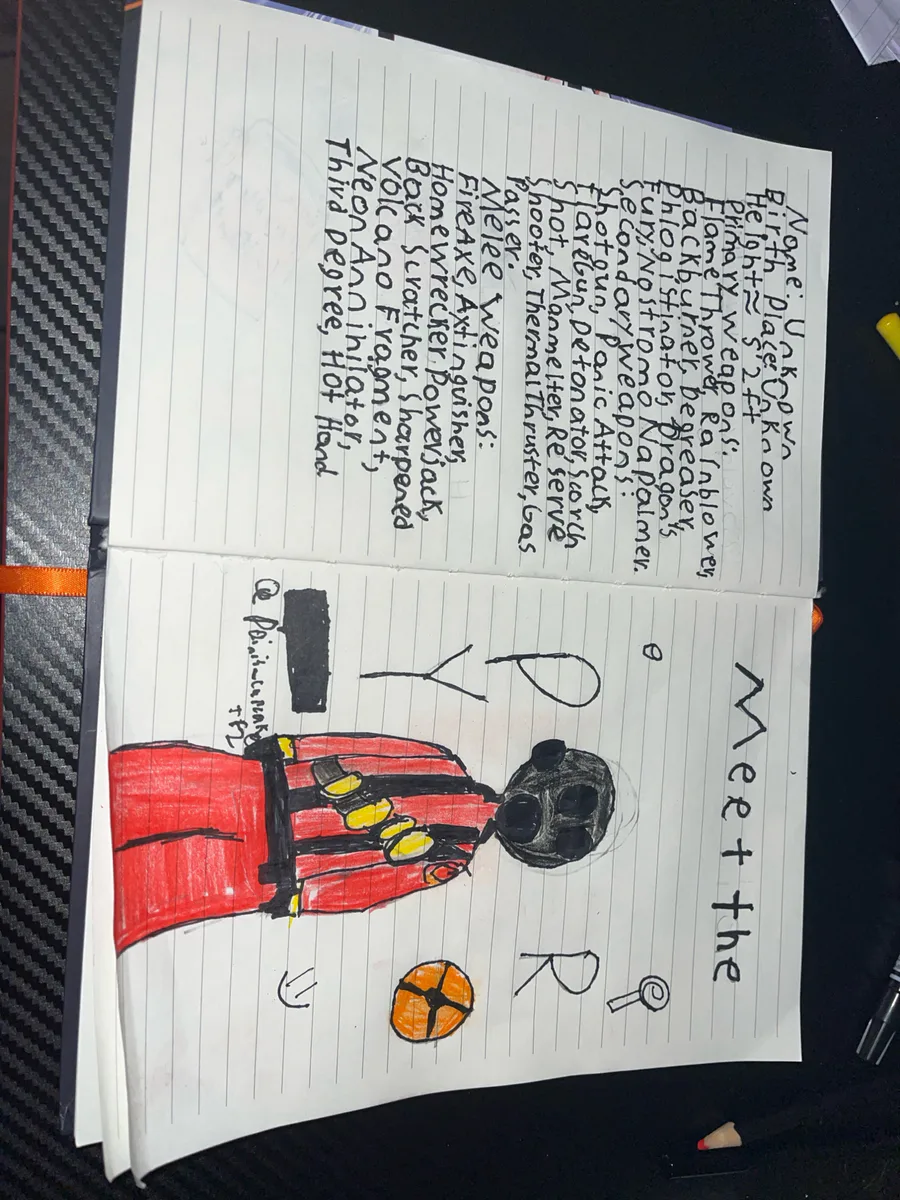 Name: Unknown
Birth place: Unknown
Height ≈ 5'2 ft
Primary weapons:
Flame Thrower, Rainblower,
Backburner, Degreaser,
Phlogistinator, Dragon's
Fury, Nostromo Napalmer.
Secondary weapons:
Shotgun, Panic Attack,
FlareGun, Detonator, Scorch
Shot, Manmelter, Reserve
Shooter, Thermal Thruster, Gas
Passer.
Melee weapons:
Fire Axe, Axtinguisher,
Homewrecker, Powerjack,
Back Scratcher, Sharpened
Volcano Fragment,
Neon Annihilator,
Third Degree, Hot Hand
Meet the
P R
Y